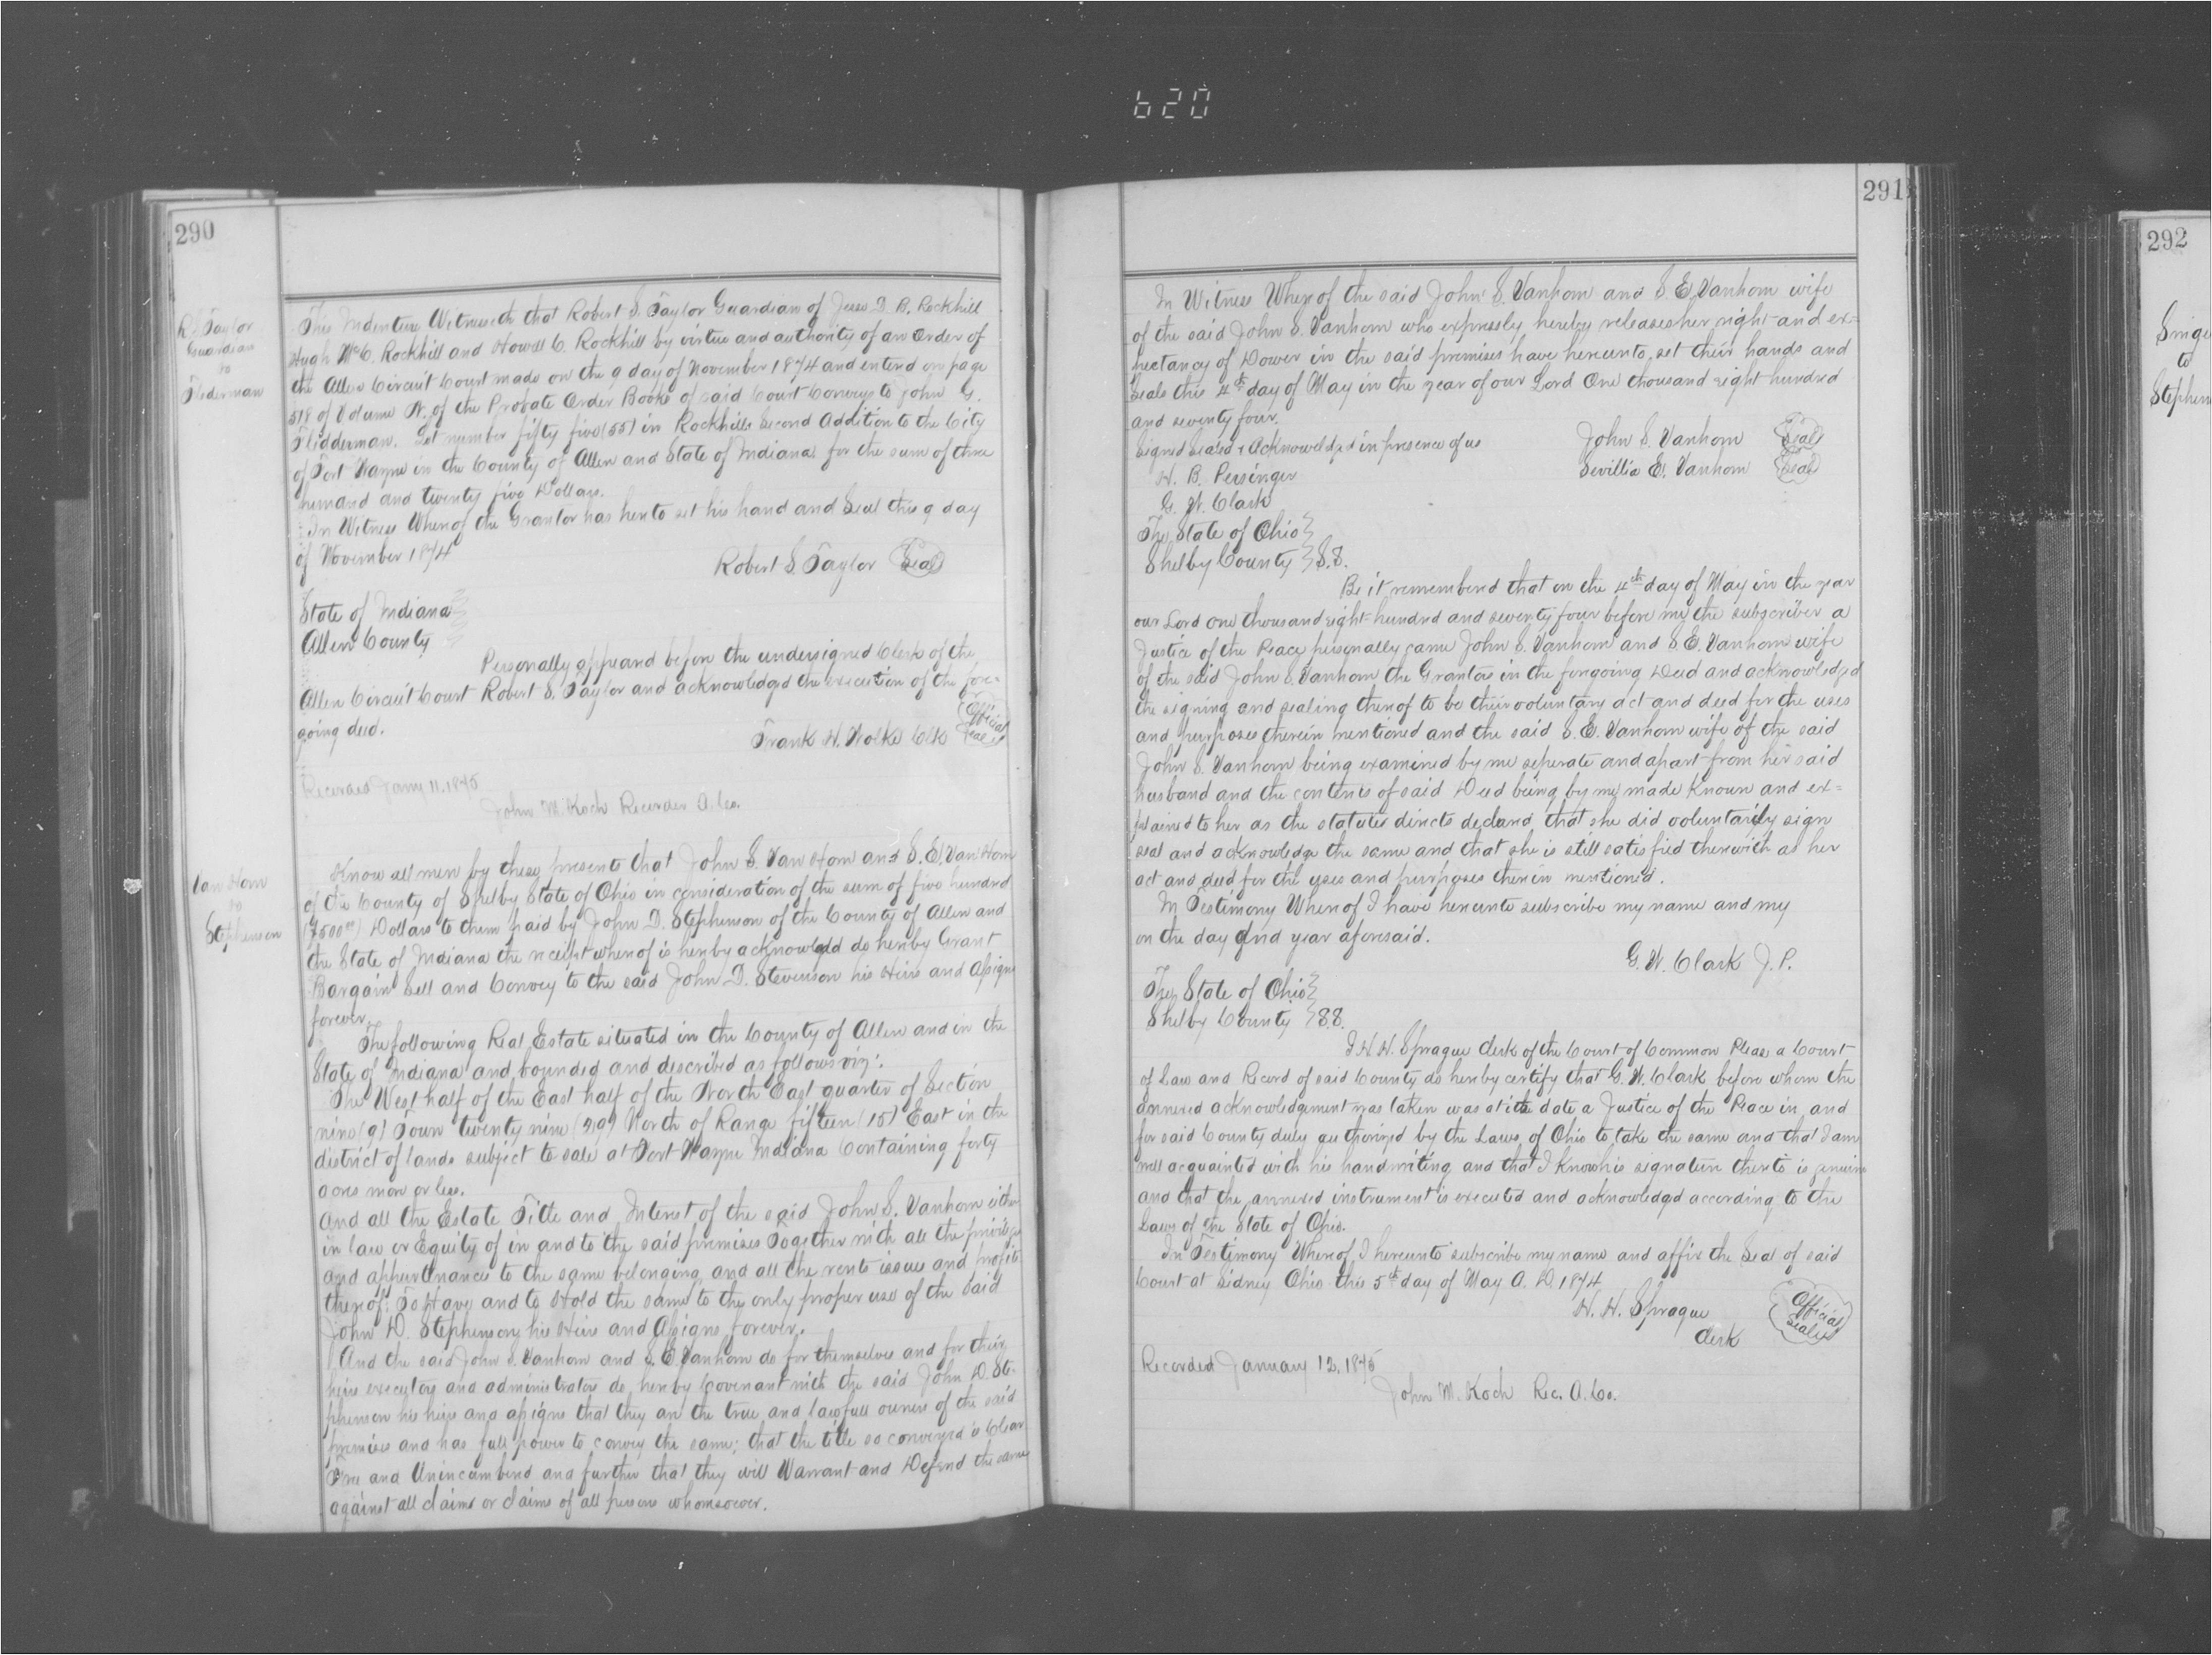 620
290
R. S. Taylor
Guardian
to
Fledderman
This Indenture Witnesseth that Robert S. Taylor Guardian of Jesse D. B. Rockhill
Hugh McC. Rockhill and Howell C. Rockhill by virtue and authority of an Order of
the Allen Circuit Court made on the 9 day of November 1874 and enterd on page
518 of Volume N. of the Probate Order Books of said Court Conveys to John G.
Fledderman. Lot number fifty five (55) in Rockhills Second Addition to the City
of Fort Wayne in the County of Allen and State of Indiana for the sum of three
hundred and twenty five Dollars.
In Witness Whereof the Grantor has hereto set his hand and Seal this 9 day
of November 1874
Robert S. Taylor Seal
State of Indiana
Allen County
Personally appeard before the undersigned Clerk of the
Allen Circuit Court Robert S. Taylor and acknowledged the execution of the fore-
going deed.
Frank H. Wolke Clk Official Seal
Recorded Jany 11, 1875
John M. Koch Recorder A. Co.
Van Horn
to
Stephenson
Know all men by these presents that John S. Van Horn and S. E. Van Horn
of the County of Shelby State of Ohio in consideration of the sum of five hundred
($500 00) Dollars to them paid by John D. Stephenson of the County of Allen and
the State of Indiana the receipt whereof is hereby acknowledgd do hereby Grant
Bargain Sell and Convey to the said John D. Stevenson his Heirs and Assigns
forever.
The following Real Estate situated in the County of Allen and in the
State of Indiana and bounded and described as follows viz:
The West half of the East half of the North East quarter of Section
nine (9) Town twenty nine (29) North of Range fifteen (15) East in the
district of lands subject to sale at Fort Wayne Indiana Containing forty
acres more or less.
And all the Estate Title and Interest of the said John S. Vanhorn either
in law or Equity of in and to the said premises Together with all the privileges
and appurtinances to the same belonging and all the rents issues and profits
thereof: To Have and to Hold the same to the only proper use of the Said
John D. Stephenson his Heirs and Assigns forever.
And the said John S. Vanhorn and S. E. Vanhorn do for themselves and for their
heirs executors and administrators do hereby Covenant with the said John D. Ste-
phenson his heirs and assigns that they are the true and lawfull owners of the said
premises and has full power to convey the same; that the title so conveyed is Clear
Free and Unincumberd and further that they will Warrant and Defend the same
against all claims or claims of all persons whomsoever.
291
In Witness Whereof the said John S. Vanhorn and S. E. Vanhorn wife
of the said John S. Vanhorn who expressly hereby releases her right and ex=
pectancy of Dower in the said premises have hereunto set their hands and
Seals this 4th day of May in the year of our Lord One thousand eight hundred
and seventy four.
Signed Sealed & Acknoweldgd in presence of us
John S. Vanhorn Seal
H. B. Persinger
Sevillia E. Vanhorn Seal
G. W. Clark
The State of Ohio
Shelby County S.S.
Be it rememberd that on the 4th day of May in the year
our Lord one thousand eight hundred and seventy four before me the subscriber a
Justice of the Peace personally came John S. Vanhorn and S. E. Vanhorn wife
of the said John S. Vanhorn the Grantors in the forgoing Deed and acknowledged
the signing and sealing thereof to be their voluntary act and deed for the uses
and purposes therein mentioned and the said S. E. Vanhorn wife of the said
John S. Vanhorn being examined by me seperate and apart from her said
husband and the contents of said Deed being by me made Known and ex=
plained to her as the statutes directs declared that she did voluntarily sign
seal and acknowledge the same and that she is still satisfied therewith as her
act and deed for the uses and purposes therein mentioned.
In Testimony Whereof I have hereunto subscribe my name and my
on the day and year aforesaid.
G. W. Clark J. P.
The State of Ohio
Shelby County S.S.
I H. H. Sprague Clerk of the Court of Common Pleas a Court
of Law and Record of said County do hereby certify that G. W. Clark before whom the
annexed acknowledgement was taken was at its date a Justice of the Peace in and
for said County duly authorized by the Laws of Ohio to take the same and that I am
well acquainted with his handwriting and that I Know his signature thereto is genuine
and that the annexed instrument is executed and acknowledgd according to the
Laws of the State of Ohio.
In Testimony Whereof I hereunto subscribe my name and affix the Seal of said
Court at Sidney Ohio this 5th day of May A. D. 1874
H. H. Sprague
Clerk
Official Seal
Recorded January 12, 1875
John M. Koch Rec. A. Co.
292
to